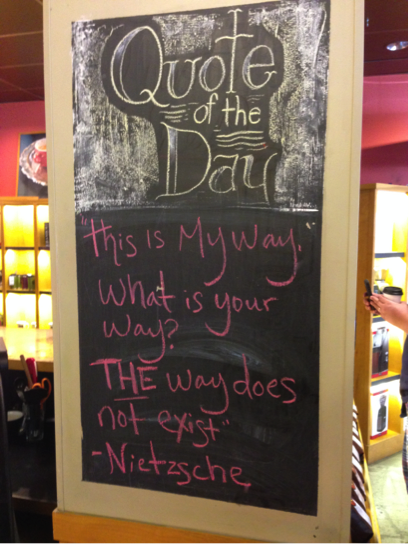 Quote
of the
Day
"This is My way."
What is your
way?
THE way does
not exist"
-Nietzsche